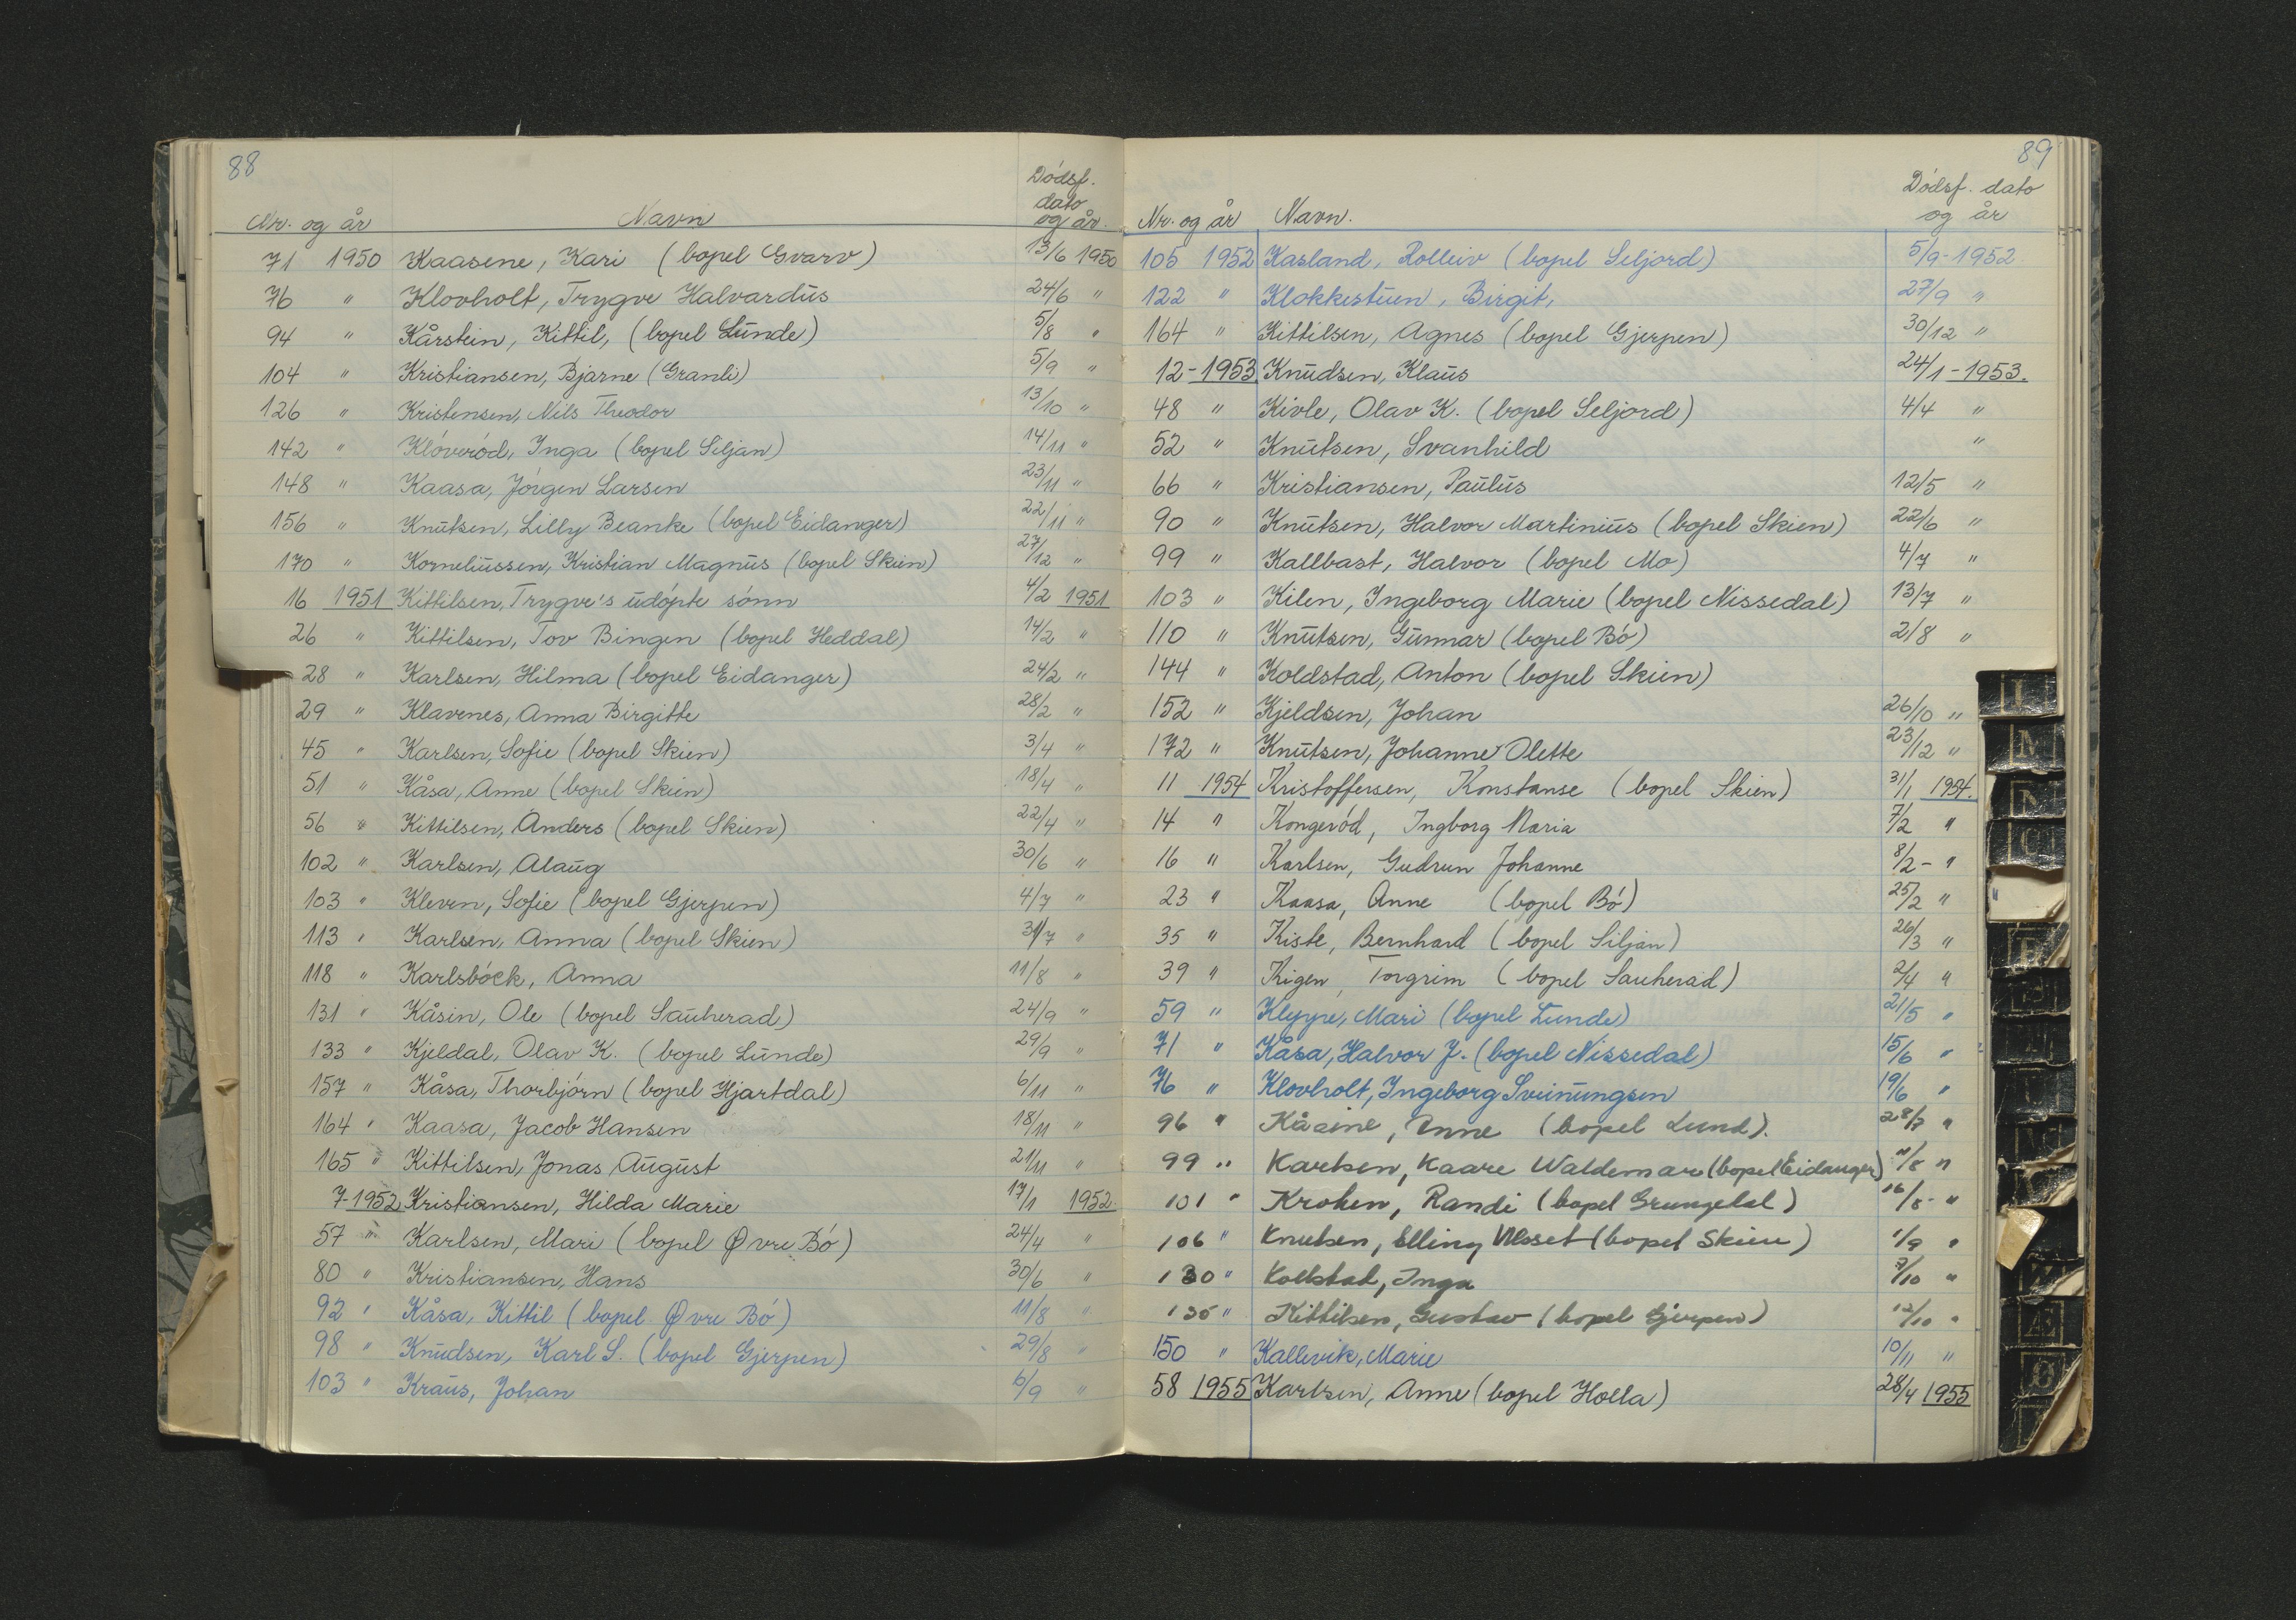 88
Nr. og år Navn Dödsf. dato og år.
71 1950 Kaasene, Kari (bopel Gvarv) 13/6 1950
76 " Klovholt, Trygve Halvardus 24/6 "
94 " Kårstein, Kittil, (bopel Lunde) 5/8 "
104 " Kristiansen, Bjarne (Granli) 5/9 "
126 " Kristensen, Nils Theodor 13/10 "
142 " Klóveród, Inga (bopel Siljan) 14/11 "
148 " Kaasa, Jórgen Larsen 23/11 "
156 " Knutsen, Lilly Beanke (bopel Eidanger) 22/11 "
170 " Korneliussen, Kristian Magnus (bopel Skien) 27/12 "
16 1951 Kittilsen, Trygve's udópte sónn 4/2 1951
26 " Kittilsen, Tov Bingen (bopel Heddal) 14/2 "
28 " Karlsen, Hilma (bopel Eidanger) 24/2 "
29 " Klavenes, Anna Birgitte 28/2 "
45 " Karlsen, Sofie (bopel Skien) 3/4 "
51 " Kåsa, Anne (bopel Skien) 18/4 "
56 " Kittilsen, Anders (bopel Skien) 22/4 "
102 " Karlsen, Alaug 30/6 "
103 " Kleven, Sofie (bopel Gjerpen) 4/7 "
113 " Karlsen, Anna (bopel Skien) 31/7 "
118 " Karlsböck, Anna 11/8 "
131 " Kåsin, Ole (bopel Sauherad) 24/9 "
133 " Kjeldal, Olav K. (bopel Lunde) 29/9 "
157 " Kåsa, Thorbjórn (bopel Hjartdal) 6/11 "
164 " Kaasa, Jacob Hansen 18/11 "
165 " Kittilsen, Jonas August 21/11 "
7-1952 Kristiansen, Hilda Marie 17/1 1952
57 " Karlsen, Mari (bopel Øvre Bó) 24/4 "
80 " Kristiansen, Hans 30/6 "
92 " Kåsa, Kittil (bopel Øvre Bó) 11/8 "
98 " Knudsen, Karl S. (bopel Gjerpen) 29/8 "
103 " Kraus, Johan 6/9 "
89
Nr. og år Navn. Dódsf. dato og år
105 1952 Kasland, Rolleiv (bopel Seljord) 5/9-1952
122 " Klokkestuen, Birgit, 27/9 "
164 " Kittilsen, Agnes (bopel Gjerpen) 30/12 "
12-1953 Knudsen, Klaus 24/1-1953.
48 " Kivle, Olav K. (bopel Seljord) 4/4 "
52 " Knutsen, Svanhild "
66 " Kristiansen, Paulus 12/5 "
90 " Knutsen, Halvor Martinius (bopel Skien) 22/6 "
99 " Kallbast, Halvor (bopel Mo) 4/7 "
103 " Kilen, Ingeborg Marie (bopel Nissedal) 13/7 "
110 " Knutsen, Gunnar (bopel Bó) 2/8 "
144 " Koldstad, Anton (bopel Skien)
152 " Kjeldsen, Johan 26/10 "
172 " Knutsen, Johanne Olette 23/12 "
11 1954 Kristoffersen, Konstanse (bopel Skien) 31/1 1954.
14 " Kongeród, Ingborg Maria 7/2 "
16 " Karlsen, Gudrun Johanne 8/2- "
23 " Kaasa, Anne (bopel Bó) 25/2 "
35 " Kiste, Bernhard (bopel Siljan) 26/3 "
39 " Kigen, Torgrim (bopel Sauherad) 2/4 "
59 " Kleppe, Mari (bopel Lunde) 21/5 "
71 " Kåsa, Halvor J. (bopel Nissedal) 15/6 "
76 " Klovholt, Ingeborg Sveinungsen 19/6 "
96 " Kåsine, Anne (bopel Lund). 28/7 "
99 " Karlsen, Kaare Waldemar (bopel Eidanger) /8 "
101 " Krohen, Randi (bopel Grungedal) 16/8- "
106 " Knutsen, Elling (bopel Skien) 1/9 "
130 " Kolstad, Inga /10 "
135 " Kittilsen, Gustav (bopel Gjerpen) 12/10 "
150 " Kallevik, Marie 10/11 "
58 1955 Karlsen, Anne (bopel Holla) 28/4 1955
M
N
Æ
Ø